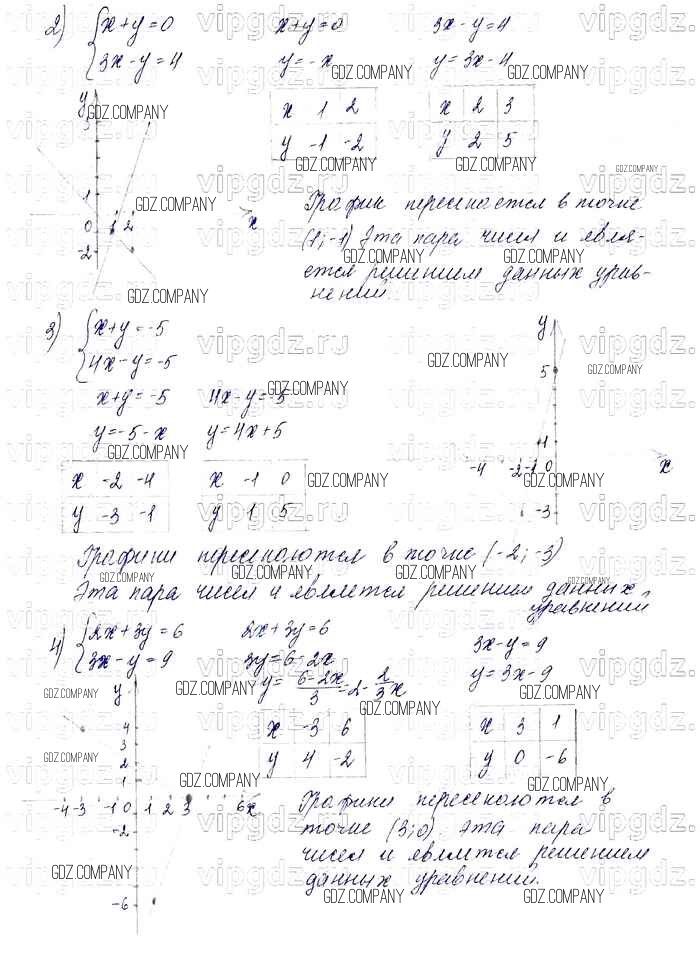 2) {x+y=0   x+y=0   3x-y=4
{3x-y=4   y=-x   y=3x-4
x 1 2   x 2 3
y -1 -2   y 2 5
График пересекается в точке
(1;-1) Эта пара чисел и явля-
ется решением данных урав-
нений.
y
1
0
-2
1 2
x
3) {x+y=-5
{4x-y=-5
x+y=-5   4x-y=-5
y=-5-x   y=4x+5
x -2 -4   x -1 0
y -3 -1   y 1 5
y
5
1
-4 -2 -1 0 x
-3
Графики пересекаются в точке (-2;-3)
Эта пара чисел и является решением данных
уравнений
4) {2x+3y=6   2x+3y=6   3x-y=9
{3x-y=9   3y=6-2x   y=3x-9
y=6-2x/3=2-2/3x
x -3 6   x 3 1
y 4 -2   y 0 -6
y
4
3
2
1
-4 -3 -1 0 1 2 3 6 x
-2
-6
Графики пересекаются в
точке (3;0). Эта пара
чисел и является решением
данных уравнений.
vipgdz.ru
GDZ.COMPANY